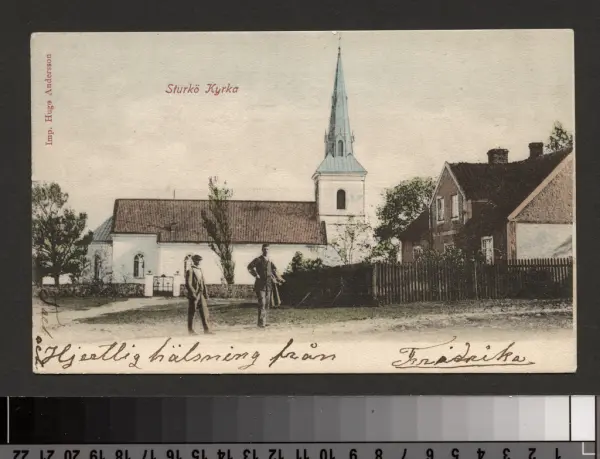 Imp. Hugo Andersson
Sturkö Kyrka
Hjertlig hälsning från Fridrika
22 21 20 19 18 17 16 15 14 13 12 11 10 9 8 7 6 5 4 3 2 1